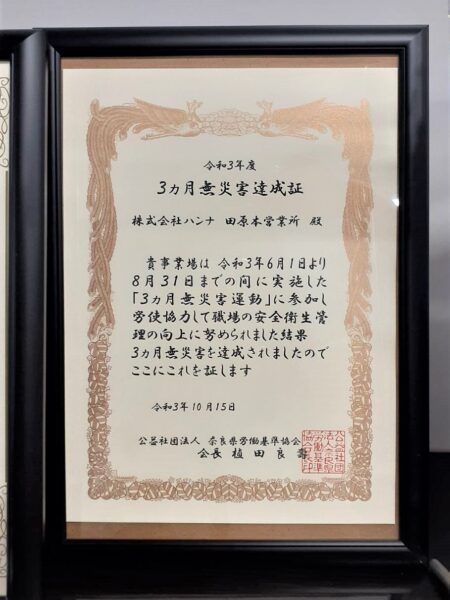 令和3年度
3ヵ月無災害達成証
株式会社ハンナ 田原本営業所 殿
貴事業場は 令和3年6月1日より
8月31日までの間に実施した
「3ヵ月無災害運動」に参加し
労使協力して職場の安全衛生管
理の向上に努められました結果
3ヵ月無災害を達成されましたので
ここにこれを証します
令和3年10月15日
公益社団法人 奈良県労働基準協会
会長 植田良壽